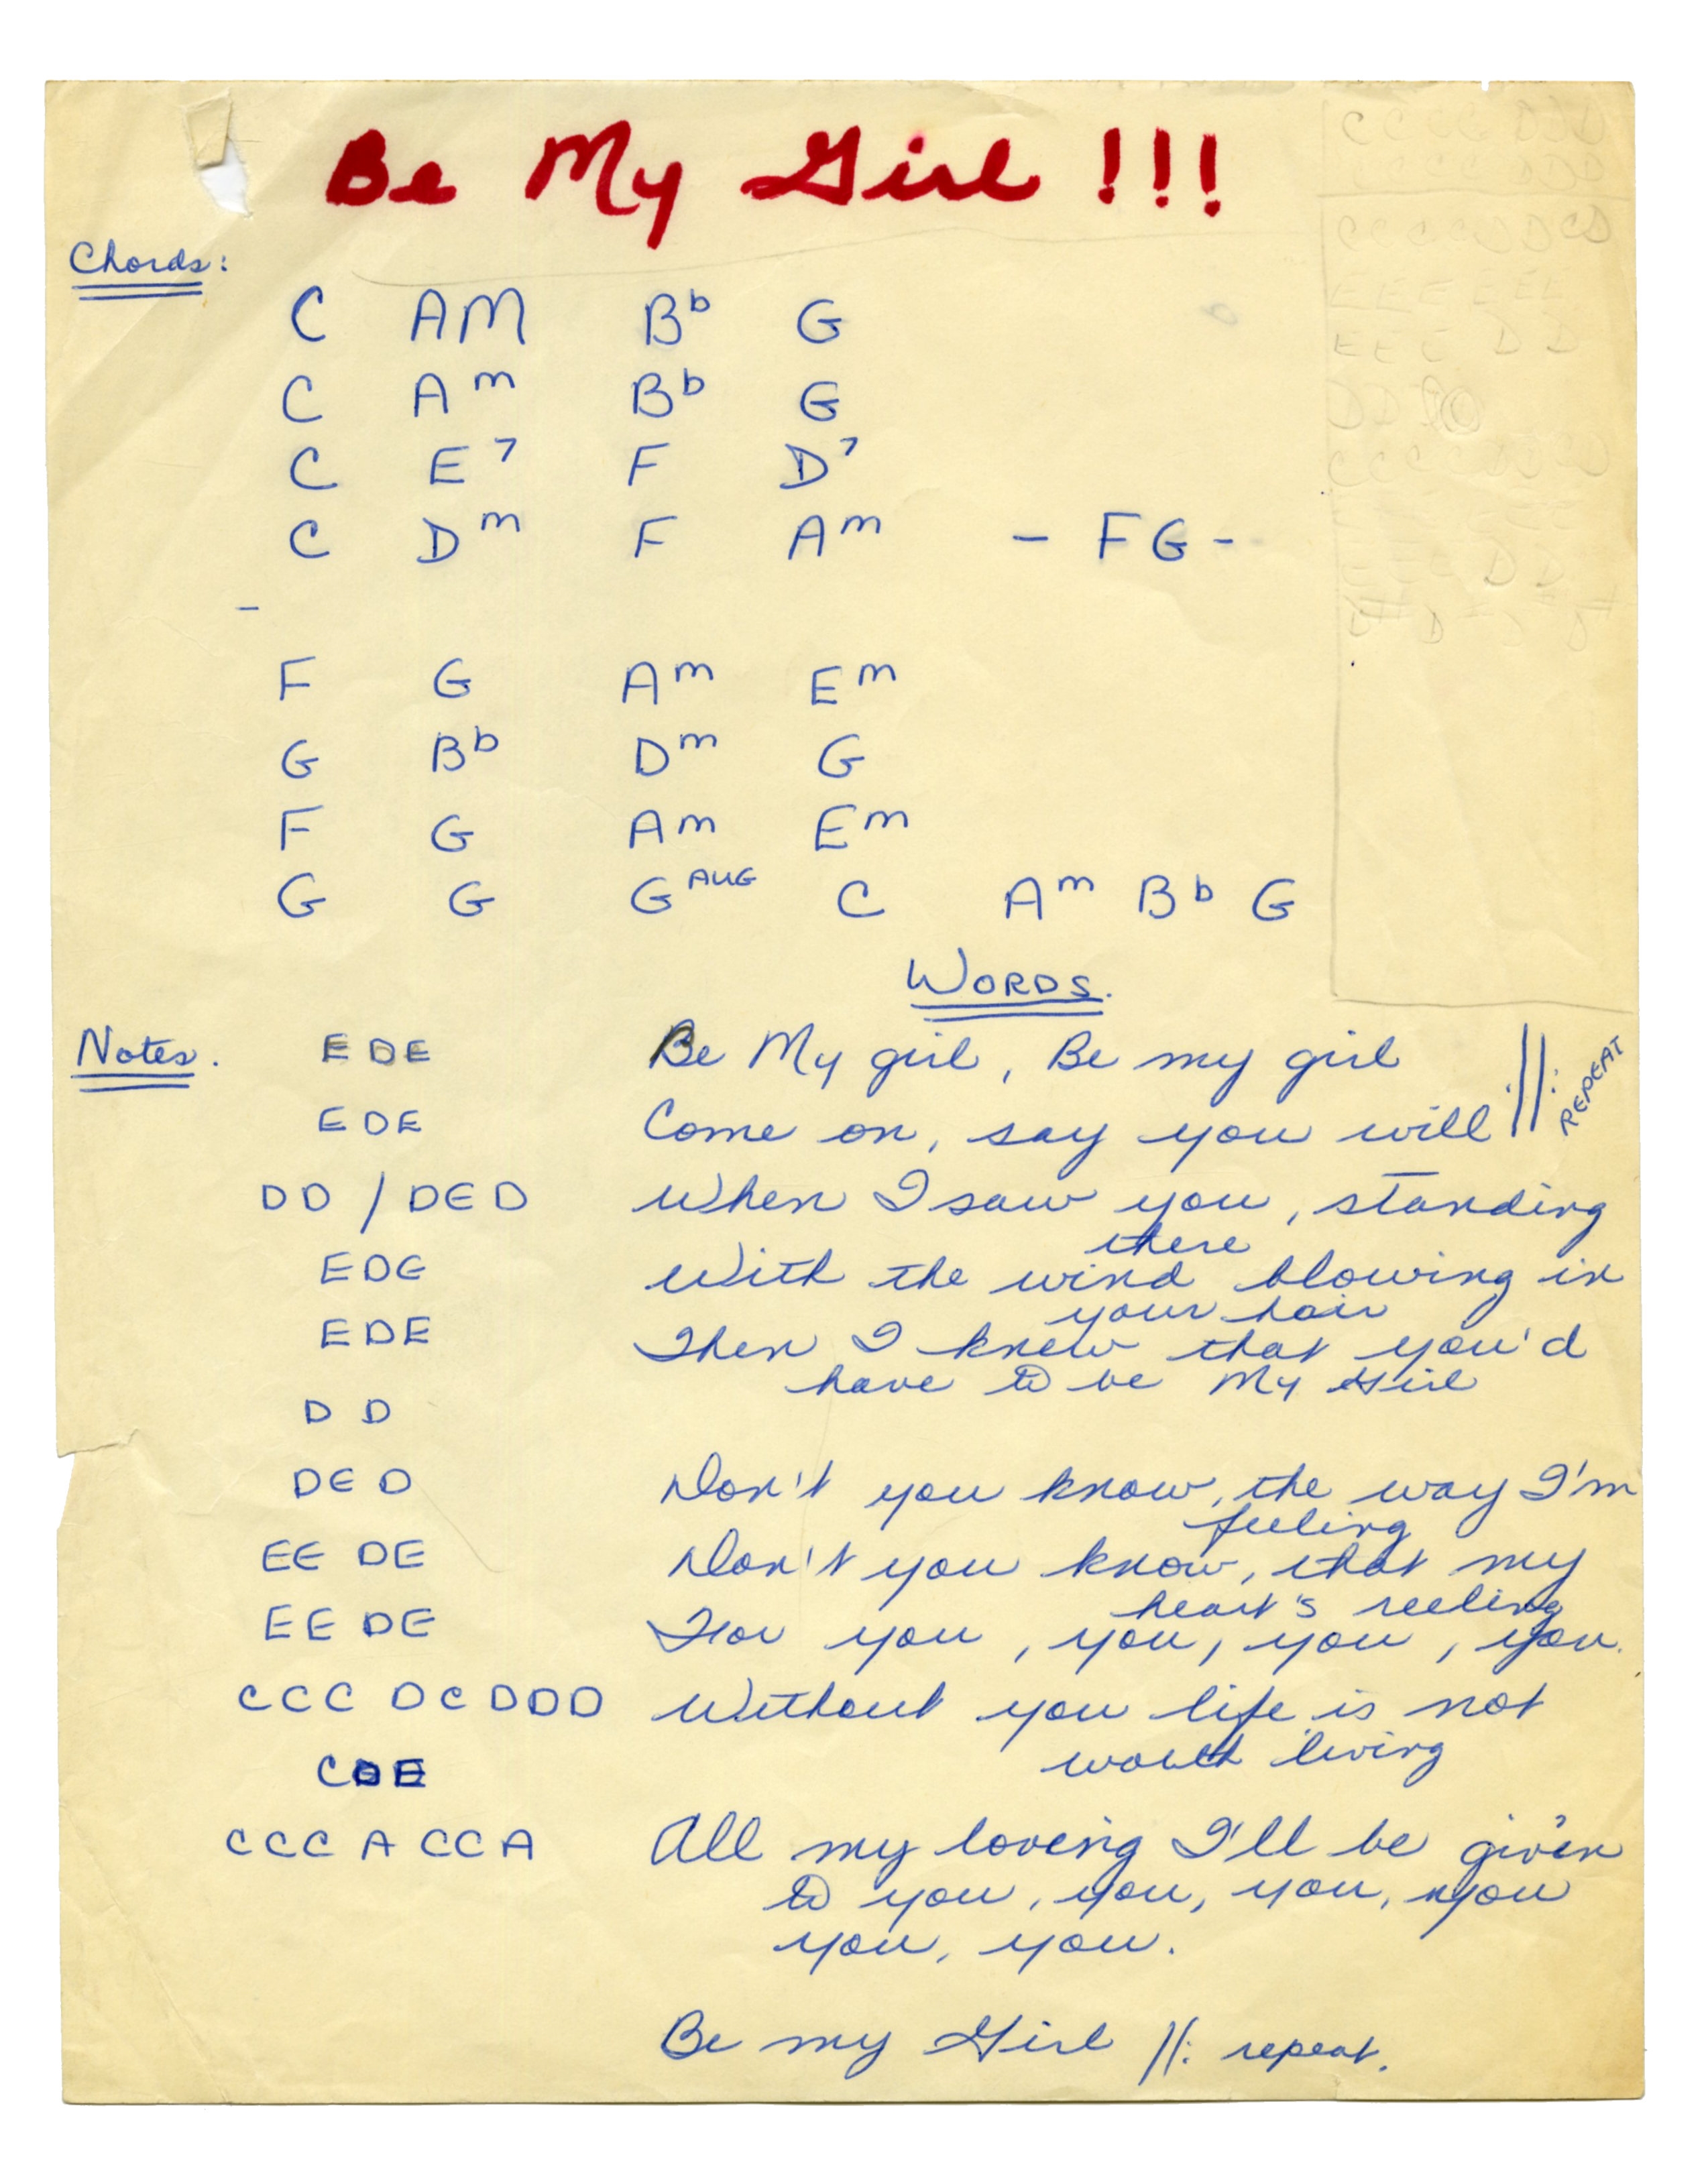 Be My Girl !!!
Chords:
C AM Bb G
C Am Bb G
C E7 F D7
C Dm F Am - F G -
-
F G Am Em
G Bb Dm G
F G Am Em
G G GAUG C Am Bb G
WORDS.
Notes. E D E Be My girl, Be my girl :||: REPEAT
E D E Come on, say you will
D D / D E D When I saw you, standing
there
E D E With the wind blowing in
your hair
E D E Then I knew that you'd
have to be My Girl
D D
D E D Don't you know, the way I'm
feeling
E E D E Don't you know, that my
heart's reeling
E E D E For you, you, you, you.
C C C D C D D D Without you life is not
worth living
C D E
C C C A C C A All my loving I'll be givin
to you, you, you, you
you, you.
Be my Girl ||: repeat.